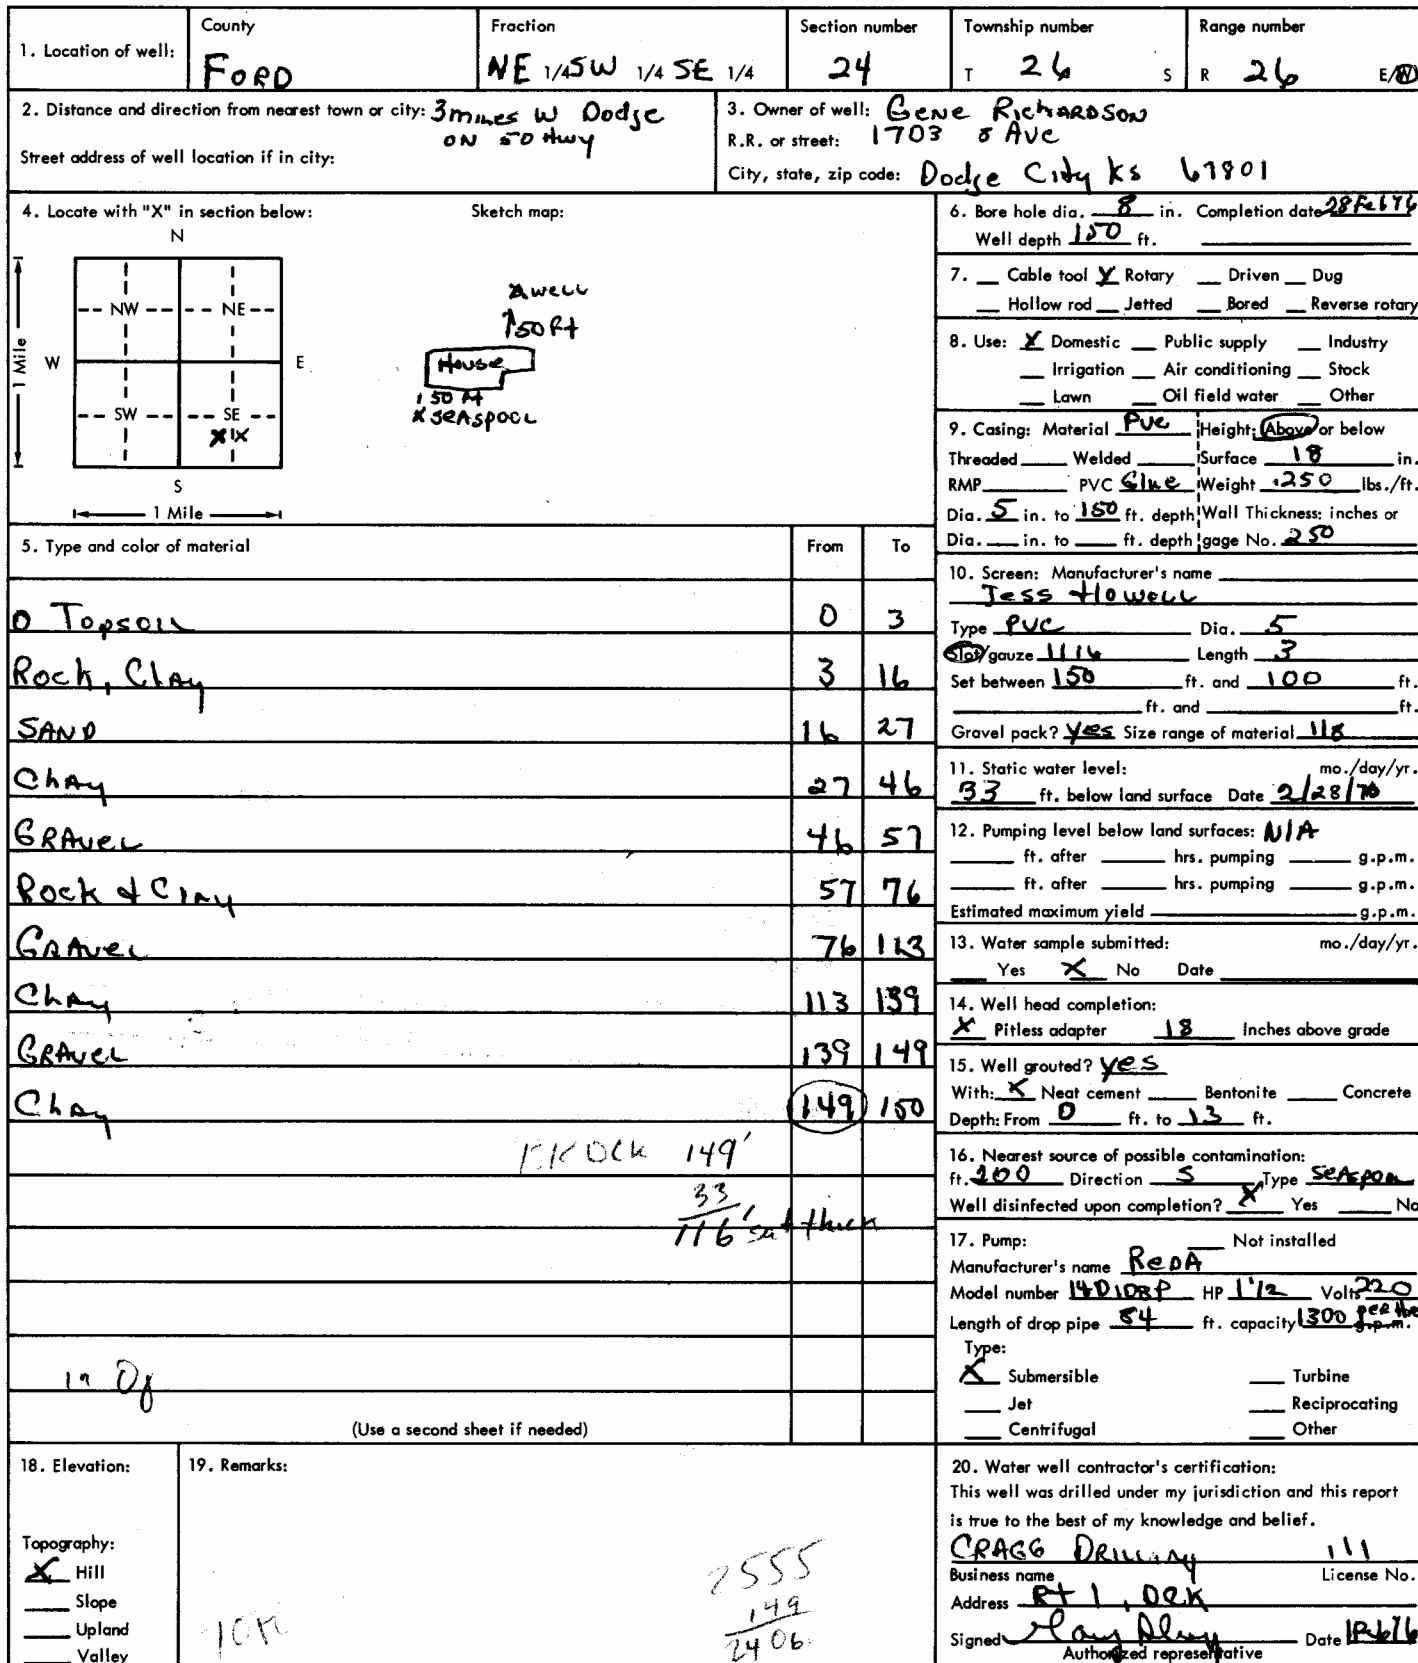 1. Location of well:
County
FORD
Fraction
NE 1/4 SW 1/4 SE 1/4
Section number
24
Township number
T 26 S
Range number
R 26 E/W
2. Distance and direction from nearest town or city: 3 miles W Dodge
ON 50 Hwy
Street address of well location if in city:
3. Owner of well: Gene RicHARDSON
R.R. or street: 1703 8 Ave
City, state, zip code: Dodge City Ks 67801
4. Locate with "X" in section below:
Sketch map:
N
NW NE
W E
SW SE
X X
S
1 Mile
1 Mile
X well
50 Ft
House
150 Ft
X SeASpool
5. Type and color of material From To
0 Topsoil 0 3
Rock, Clay 3 16
SAND 16 27
Clay 27 46
GRAvel 46 57
Rock & Clay 57 76
GRAvel 76 113
Clay 113 139
GRAvel 139 149
Clay 149 150
149'
33
116' sat thick
(Use a second sheet if needed)
6. Bore hole dia. 8 in. Completion date 28 Feb 76
Well depth 150 ft.
7. Cable tool X Rotary Driven Dug
Hollow rod Jetted Bored Reverse rotary
8. Use: X Domestic Public supply Industry
Irrigation Air conditioning Stock
Lawn Oil field water Other
9. Casing: Material PVC Height: Above or below
Threaded Welded Surface 18 in.
RMP PVC Glue Weight .250 lbs./ft.
Dia. 5 in. to 150 ft. depth Wall Thickness: inches or
Dia. in. to ft. depth gage No. 250
10. Screen: Manufacturer's name
Jess Howell
Type PVC Dia. 5
Slot/gauze 1/16 Length 3
Set between 150 ft. and 100 ft.
ft. and ft.
Gravel pack? Yes Size range of material 1/8
11. Static water level: mo./day/yr.
33 ft. below land surface Date 2/28/76
12. Pumping level below land surfaces: N/A
ft. after hrs. pumping g.p.m.
ft. after hrs. pumping g.p.m.
Estimated maximum yield g.p.m.
13. Water sample submitted: mo./day/yr.
Yes X No Date
14. Well head completion:
X Pitless adapter 18 Inches above grade
15. Well grouted? yes
With: X Neat cement Bentonite Concrete
Depth: From 0 ft. to 13 ft.
16. Nearest source of possible contamination:
ft. 200 Direction S Type SeASpool
Well disinfected upon completion? X Yes No
17. Pump: Not installed
Manufacturer's name RedA
Model number 14D10BP HP 1 1/2 Volts 220
Length of drop pipe 84 ft. capacity 1300 per Hr g.p.m.
Type:
X Submersible Turbine
Jet Reciprocating
Centrifugal Other
18. Elevation:
Topography:
X Hill
Slope
Upland
Valley
19. Remarks:
2555
149
2406
20. Water well contractor's certification:
This well was drilled under my jurisdiction and this report
is true to the best of my knowledge and belief.
CRAGG Drilling 111
Business name License No.
Address Rt 1, DCK
Signed Date
Authorized representative